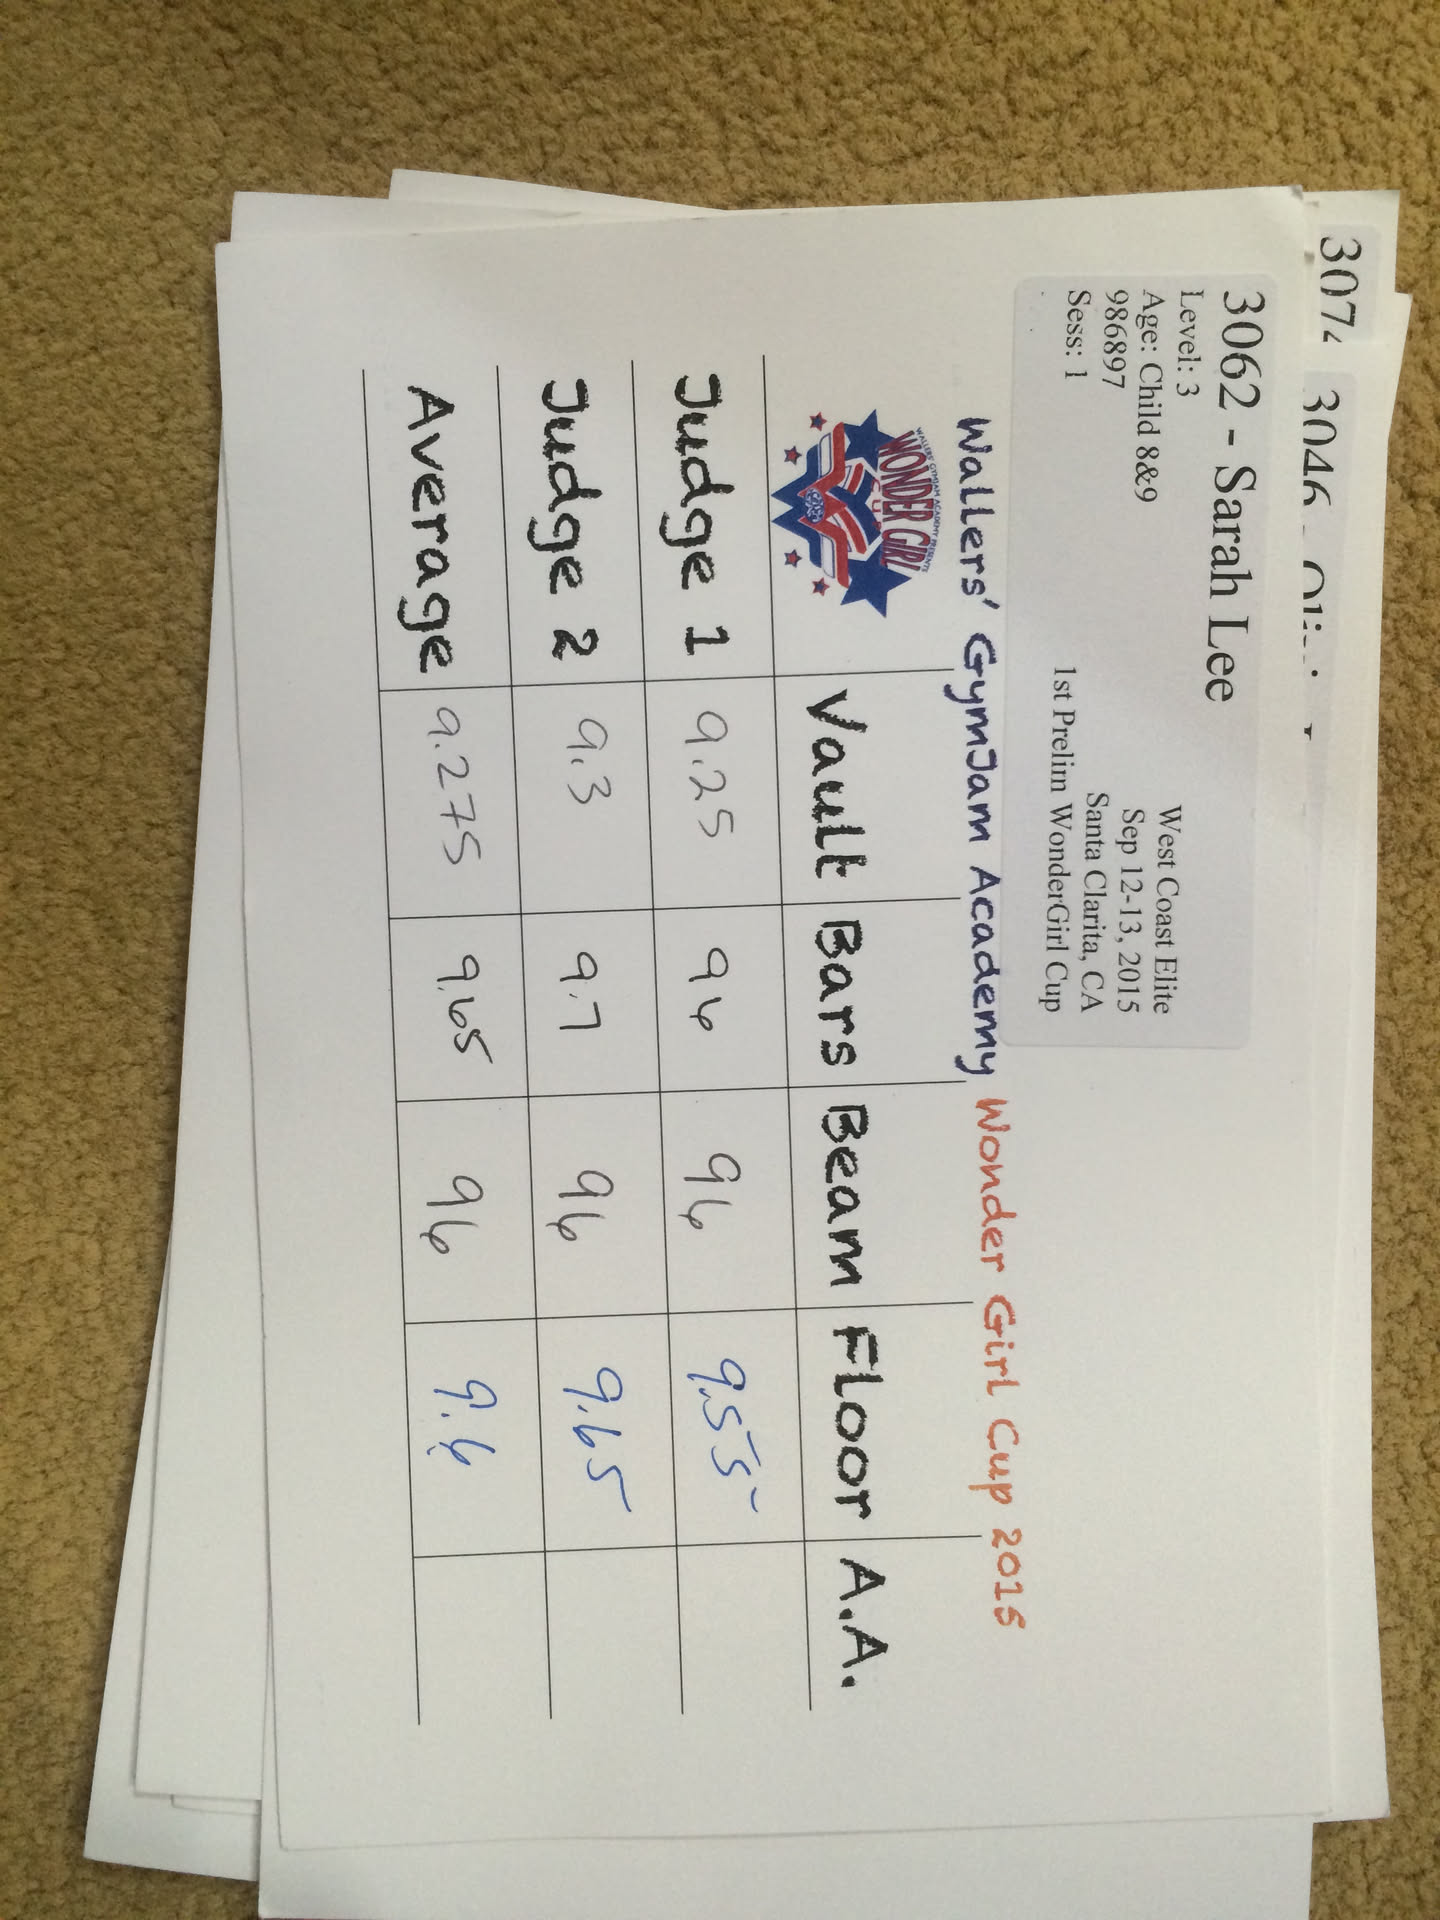 3074
3046
3062 - Sarah Lee
Level: 3
Age: Child 8&9
986897
Sess: 1
West Coast Elite
Sep 12-13, 2015
Santa Clarita, CA
1st Prelim WonderGirl Cup
Wallers' GymJam Academy Wonder Girl Cup 2015
WALLERS' GYMJAM ACADEMY PRESENTS
WONDER GIRL
CUP
Vault Bars Beam Floor A.A.
Judge 1 9.25 96 96 9.55
Judge 2 9.3 9.7 96 9.65
Average 9.275 9.65 96 9.6